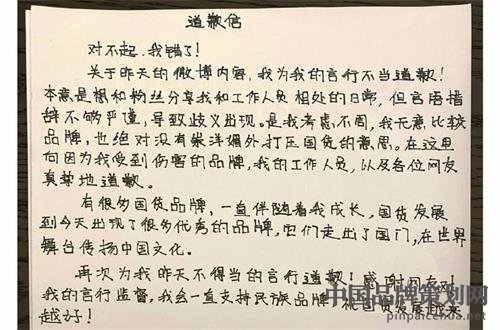 道歉信
对不起，我错了！
关于昨天的微博内容，我为我的言行不当道歉！
本意是想和粉丝分享我和工作人员相处的日常，但言语措
辞不够严谨，导致歧义出现。是我考虑不周，我无意比较
品牌，也绝对没有崇洋媚外打压国货的意思。在这里
向因为我受到伤害的品牌，我的工作人员，以及各位网友
真挚地道歉。
有很多国货品牌，一直伴随着我成长，国货发展
到今天出现了很多优秀的品牌，它们走出了国门，在世界
舞台传扬中国文化。
再次为我昨天不得当的言行道歉！感谢网友对
我的言行监督，我会一直支持民族品牌，祝国货发展越来
越好！
中国品牌策划网
pinpaicehua.net